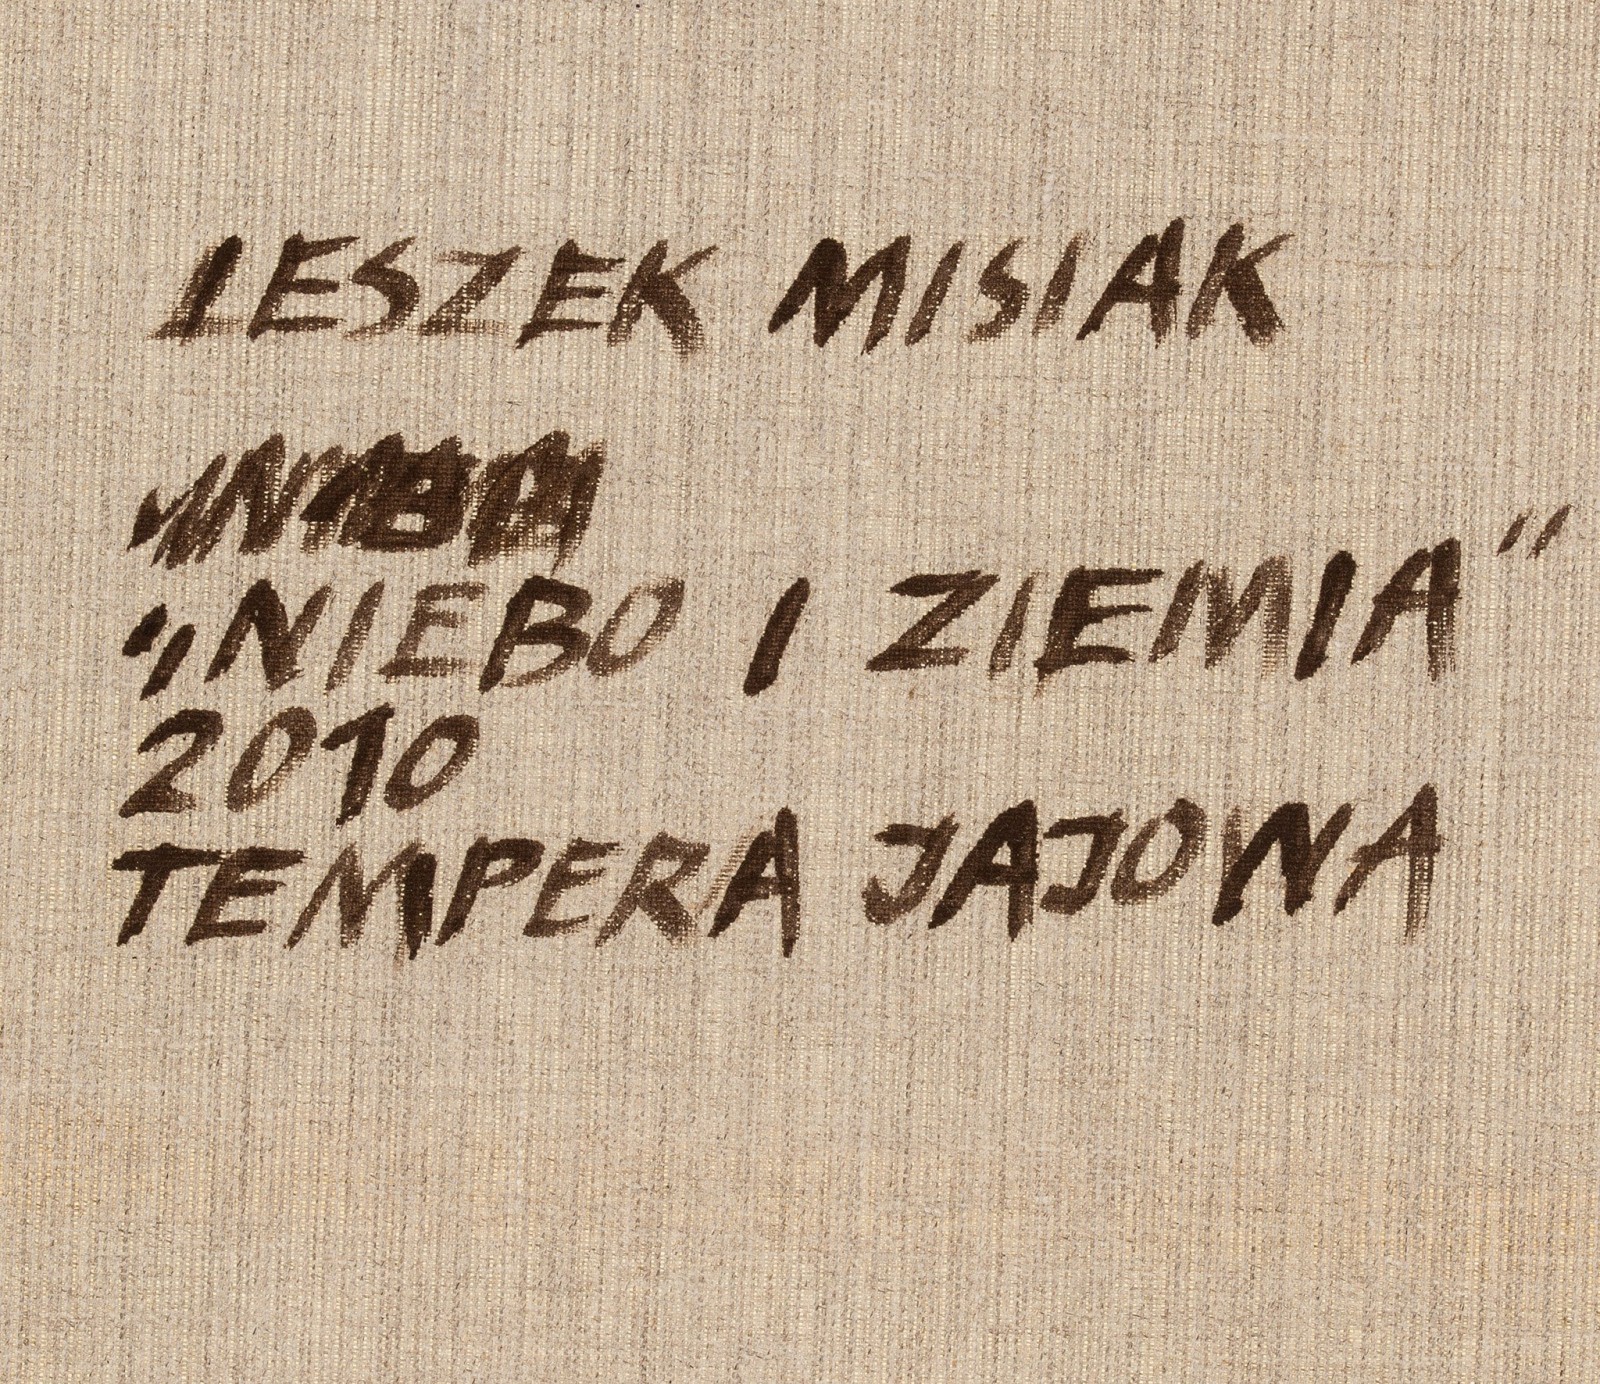 LESZEK MISIAK
„NIEBO I ZIEMIA”
2010
TEMPERA JAJOWA